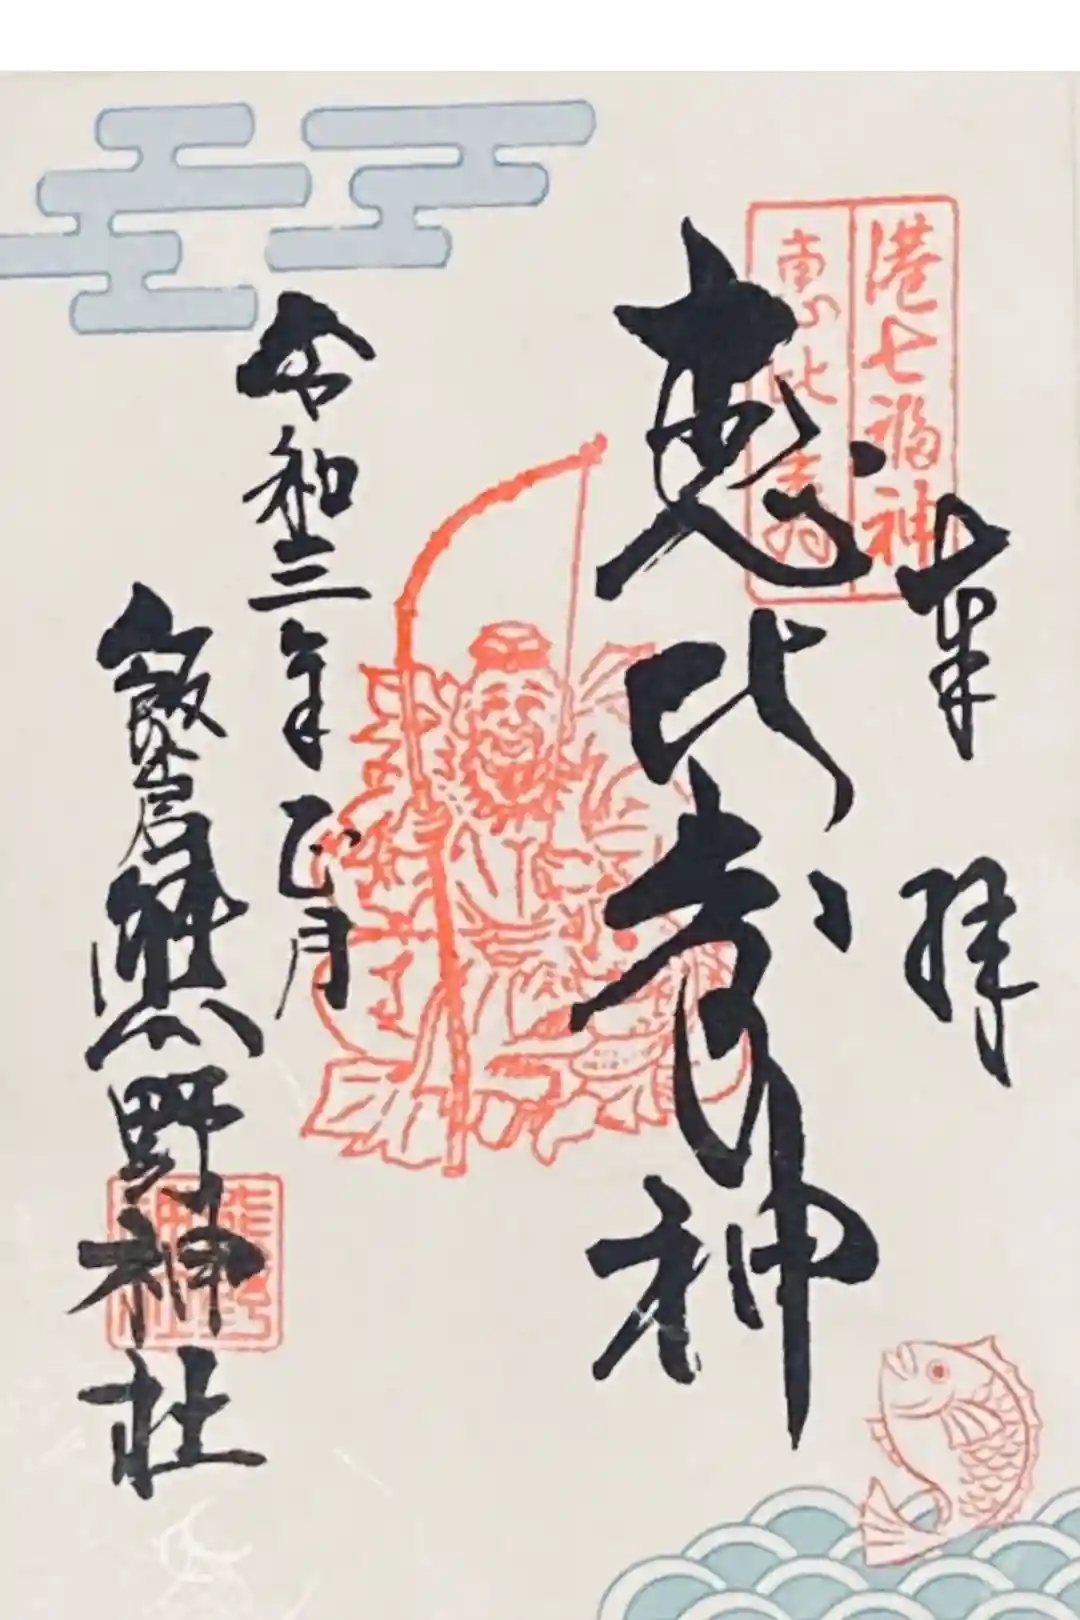 奉拝
港七福神
恵比寿
恵比寿神
令和三年正月
飯倉熊野神社
熊野
神社